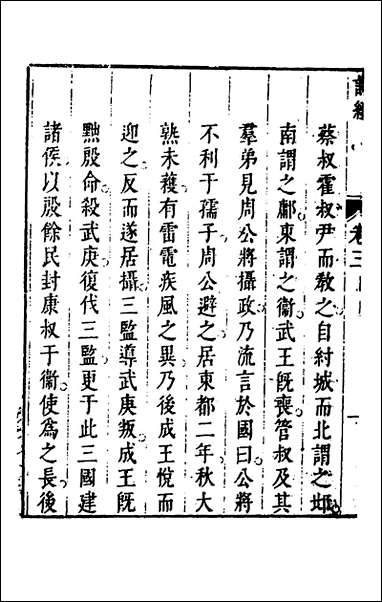 詩經 卷三
蔡叔霍叔尹而敎之自紂城而北謂之邶
南謂之鄘東謂之衞武王旣喪管叔及其
羣弟見周公將攝政乃流言於國曰公將
不利于孺子周公避之居東都二年秋大
熟未穫有雷電疾風之異乃後成王悅而
迎之反而遂居攝三監導武庚叛成王旣
黜殷命殺武庚復伐三監更于此三國建
諸侯以殷餘民封康叔于衞使爲之長後